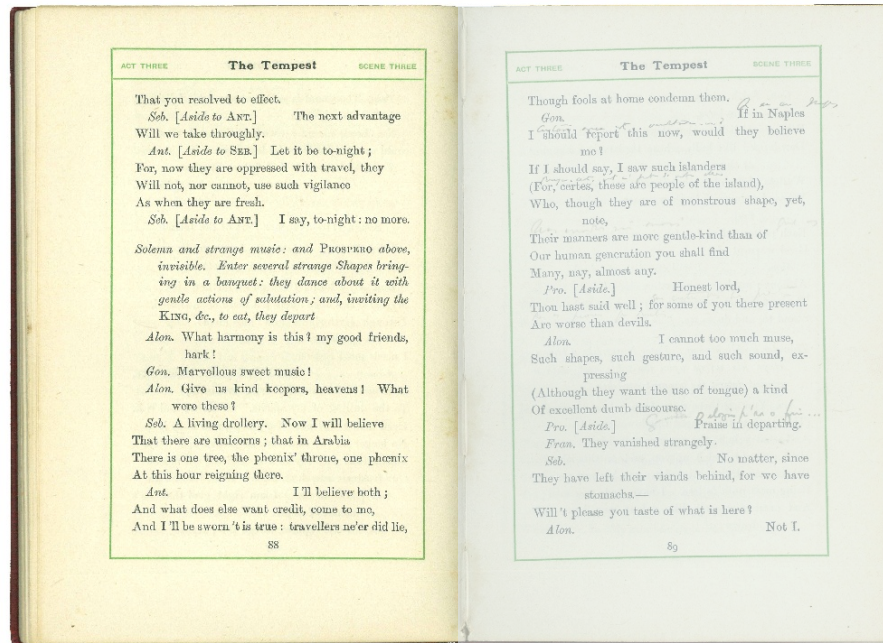 ACT THREE The Tempest SCENE THREE
That you resolved to effect.
Seb. [Aside to ANT.] The next advantage
Will we take throughly.
Ant. [Aside to SEB.] Let it be to-night;
For, now they are oppressed with travel, they
Will not, nor cannot, use such vigilance
As when they are fresh.
Seb. [Aside to ANT.] I say, to-night: no more.
Solemn and strange music: and PROSPERO above,
invisible. Enter several strange Shapes bring-
ing in a banquet: they dance about it with
gentle actions of salutation; and, inviting the
KING, &c., to eat, they depart
Alon. What harmony is this? my good friends,
hark!
Gon. Marvellous sweet music!
Alon. Give us kind keepers, heavens! What
were these?
Seb. A living drollery. Now I will believe
That there are unicorns; that in Arabia
There is one tree, the phœnix' throne, one phœnix
At this hour reigning there.
Ant. I'll believe both;
And what does else want credit, come to me,
And I'll be sworn 't is true: travellers ne'er did lie,
88
ACT THREE The Tempest SCENE THREE
Though fools at home condemn them.
Gon. If in Naples
I should report this now, would they believe
me?
If I should say, I saw such islanders
(For, certes, these are people of the island),
Who, though they are of monstrous shape, yet,
note,
Their manners are more gentle-kind than of
Our human generation you shall find
Many, nay, almost any.
Pro. [Aside.] Honest lord,
Thou hast said well; for some of you there present
Are worse than devils.
Alon. I cannot too much muse,
Such shapes, such gesture, and such sound, ex-
pressing
(Although they want the use of tongue) a kind
Of excellent dumb discourse.
Pro. [Aside.] Praise in departing.
Fran. They vanished strangely.
Seb. No matter, since
They have left their viands behind, for we have
stomachs.—
Will 't please you taste of what is here?
Alon. Not I.
89